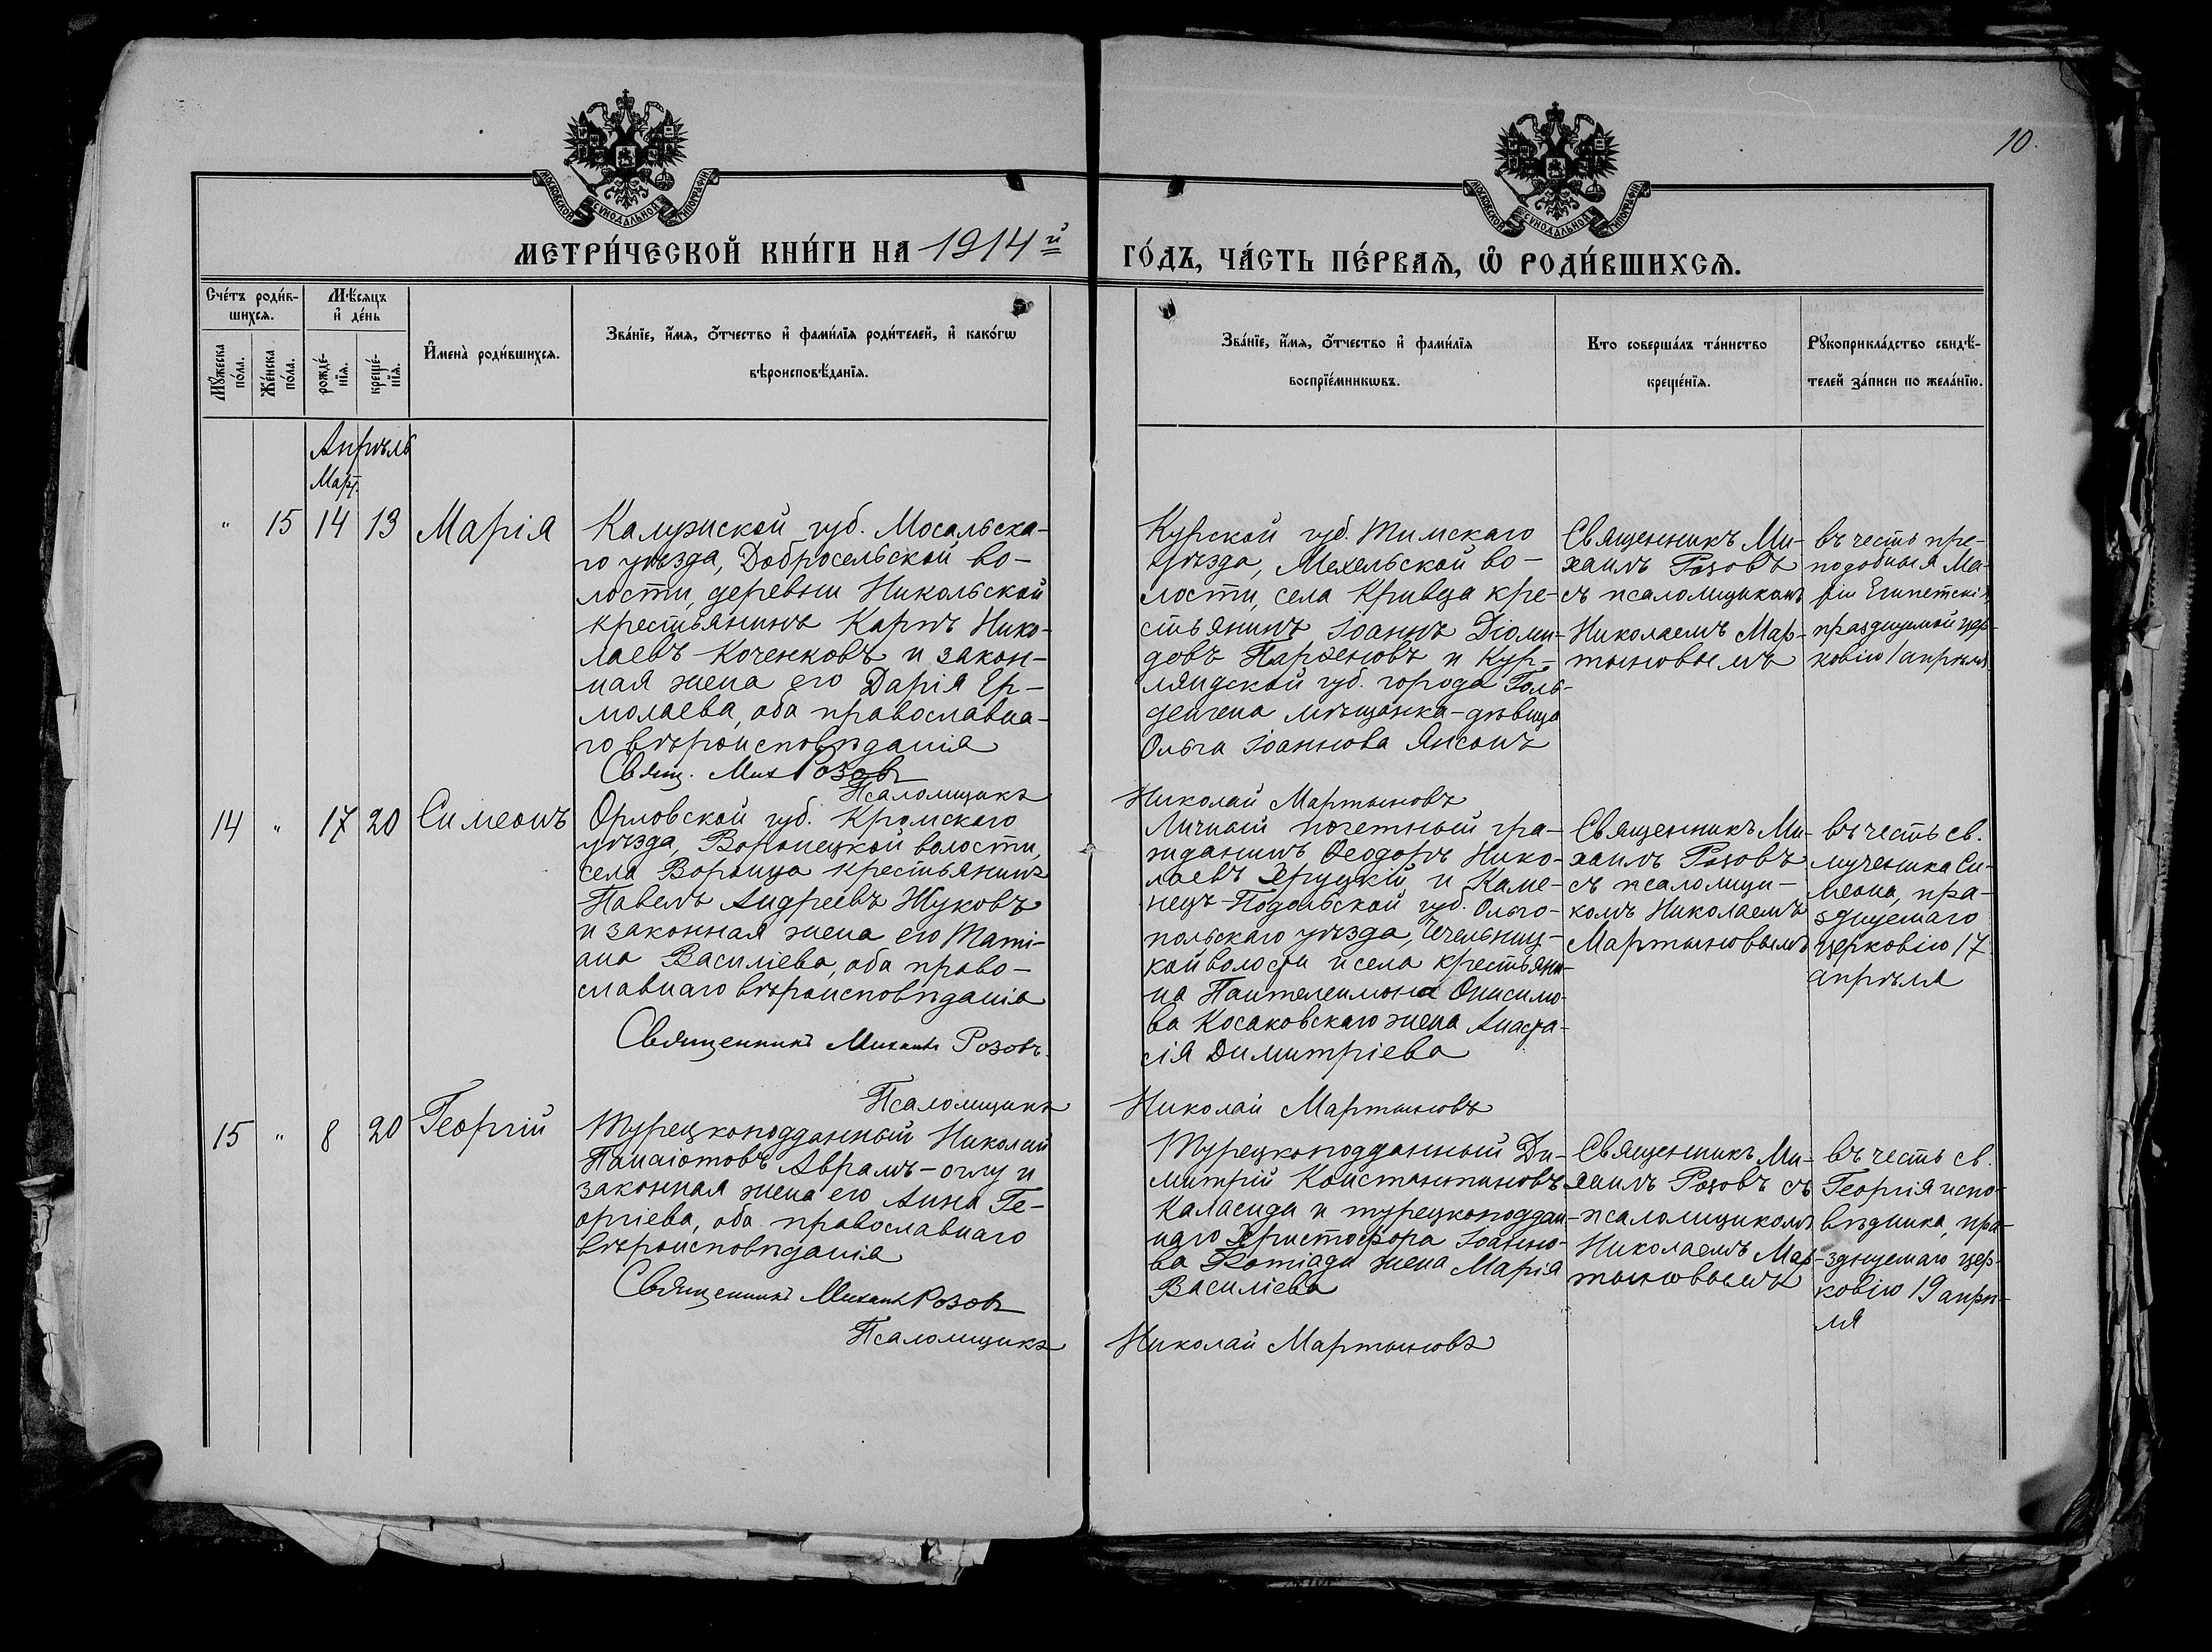 10.
МОСКОВСКОЙ СѴНОДАЛЬНОЙ ТИПОГРАФІИ
МОСКОВСКОЙ СѴНОДАЛЬНОЙ ТИПОГРАФІИ
МЕТРИ́ЧЕСКОЙ КНИ́ГИ НА 1914й ГО́ДЪ, ЧА́СТЬ ПЕ́РВАѦ, Ѡ҆ РОДИ́ВШИХСѦ.
Сче́тъ роди́в-
шихсѧ.
Мѣ́сѧцъ
и҆ де́нь
Мꙋ́жеска
по́ла.
Же́нска
по́ла.
рожде́-
нїѧ.
креще́-
нїѧ.
И҆мена̀ роди́вшихсѧ.
Зва́нїе, и҆́мѧ, ѻ҆́тчество и҆ фами́лїѧ роди́телей, и҆ како́гѡ
вѣроисповѣ́данїѧ.
Зва́нїе, и҆́мѧ, ѻ҆́тчество и҆ фами́лїѧ
воспрїе́мникѡвъ.
Кто соверша́лъ та́инство
креще́нїѧ.
Рꙋкоприкла́дство свидѣ́-
телей за́писи по жела́нїю.
Апрѣль
Март.
" 15 14 13 Марія
Калужской губ. Мосальска-
го уѣзда, Добросельской во-
лости, деревни Никольской
крестьянинъ Карпъ Нико-
лаевъ Коченковъ и закон-
ная жена его Дарія Ер-
молаева, оба православна-
го вѣроисповѣданія
Свящ. Мих Розовъ
Псаломщикъ
Курской губ. Тимскаго
уѣзда, Мехельской во-
лости, села Кривца кре-
стьянинъ Іоаннъ Діоми-
довъ Парѳеновъ и Кур-
ляндской губ. города Голь-
денгена мѣщанка-дѣвица
Ольга Іоаннова Янсонъ
Николай Мартыновъ
Священникъ Ми-
хаилъ Розовъ
съ псаломщикомъ
Николаемъ Мар-
тыновымъ
въ честь пре-
подобныя Ма-
ріи Египетскія,
празднуемой цер-
ковію 1 апрѣля
14 " 17 20 Симеонъ
Орловской губ. Кромскаго
уѣзда, Воронецкой волости,
села Воронца крестьянинъ
Павелъ Андреевъ Жуковъ
и законная жена его Тати-
ана Василіева, оба право-
славнаго вѣроисповѣданія
Священникъ Михаилъ Розовъ.
Псаломщикъ
Личный почетный гра-
жданинъ Ѳеодоръ Нико-
лаевъ Яруцкій и Каме-
нецъ-Подольской губ. Ольго-
польскаго уѣзда,
кой волости и села крестьяни-
на Пантелеимона Онисимо-
ва Косаковскаго жена Анаста-
сія Димитріева
Николай Мартыновъ
Священникъ Ми-
хаилъ Розовъ
съ псаломщи-
комъ Николаемъ
Мартыновымъ
въ честь св.
мученика Си-
меона, пра-
зднуемаго
церковію 17
апрѣля
15 " 8 20 Георгій
Турецкоподданный Николай
Панаіотовъ Аврамъ-оглу и
законная жена его Анна Ге-
оргіева, оба православнаго
вѣроисповѣданія
Священникъ Михаилъ Розовъ
Псаломщикъ
Турецкоподданный Ди-
митрій Константиновъ
Каласиди и турецкоподдан-
наго Христофора Іоанно-
ва Фотіади жена Марія
Василіева
Николай Мартыновъ
Священникъ Ми-
хаилъ Розовъ съ
псаломщикомъ
Николаемъ Мар-
тыновымъ
въ честь св.
Георгія испо-
вѣдника, пра-
зднуемаго цер-
ковію 19 апрѣ-
ля